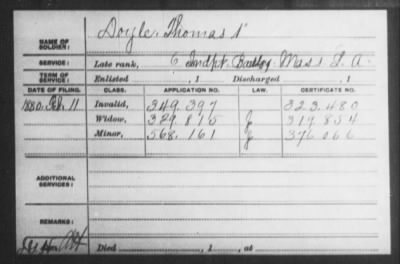 NAME OF SOLDIER: Doyle, Thomas
SERVICE: Late rank, 6 Indpt. Batty Mass L. A.
TERM OF SERVICE: Enlisted , 1 Discharged , 1
DATE OF FILING. CLASS. APPLICATION NO. LAW. CERTIFICATE NO.
1880, Feb. 11 Invalid, 349.397 323.480
Widow, 329.815 317.854
Minor, 568.161 376.066
ADDITIONAL SERVICES:
REMARKS:
Died , 1 , at